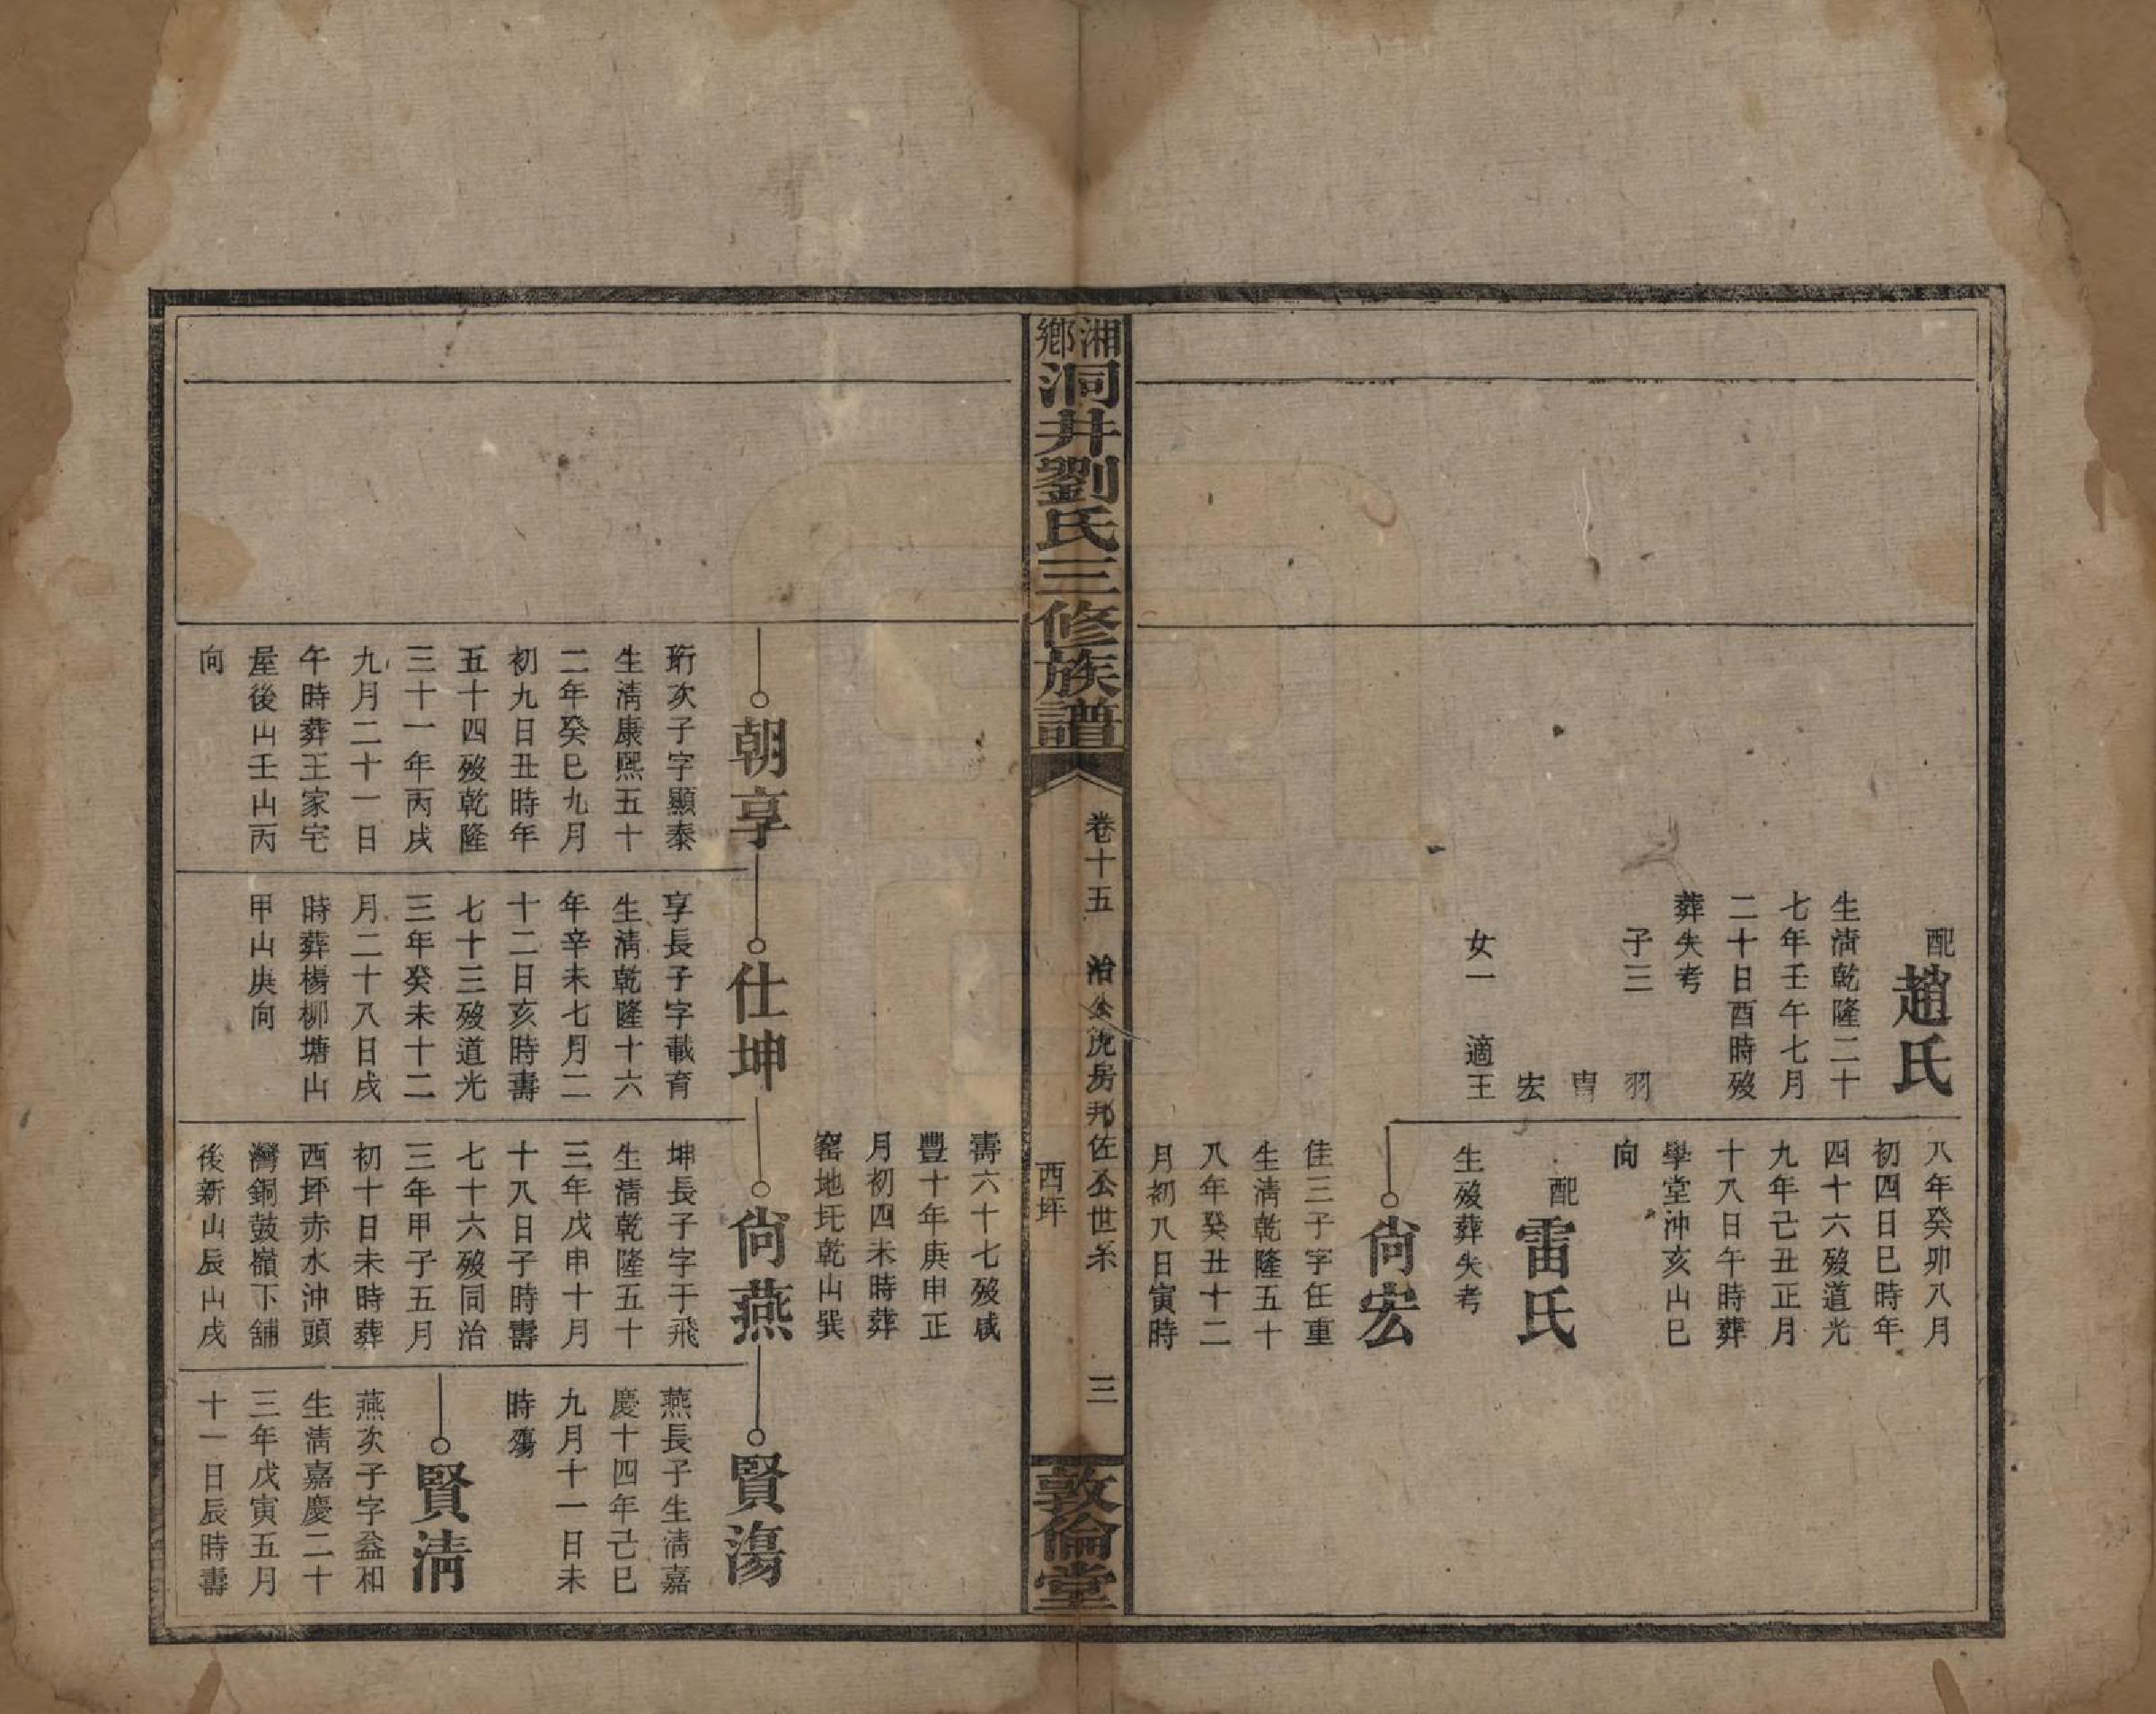 配趙氏
生淸乾隆二十
七年壬午七月
二十日酉時歿
葬失考
子三 羽
冑
宏
女一 適王
八年癸卯八月
初四日巳時年
四十六歿道光
九年己丑正月
十八日午時葬
學堂沖亥山巳
向
配雷氏
生歿葬失考
尙宏
佳三子字任重
生淸乾隆五十
八年癸丑十二
月初八日寅時
湘鄉洞井劉氏三修族譜
卷十五 治公虎房邦佐公世系 三
西坪
敦倫堂
壽六十七歿咸
豐十年庚申正
月初四未時葬
窰地圫乾山巽
朝享
珩次子字顯泰
生淸康熙五十
二年癸巳九月
初九日丑時年
五十四歿乾隆
三十一年丙戌
九月二十一日
午時葬王家宅
屋後山壬山丙
向
仕坤
享長子字載育
生淸乾隆十六
年辛未七月二
十二日亥時壽
七十三歿道光
三年癸未十二
月二十八日戌
時葬楊柳塘山
甲山庚向
尙燕
坤長子字于飛
生淸乾隆五十
三年戊申十月
十八日子時壽
七十六歿同治
三年甲子五月
初十日未時葬
西坪赤水沖頭
灣銅鼓嶺下舖
後新山辰山戌
賢瀉
燕長子生淸嘉
慶十四年己巳
九月十一日未
時殤
賢淸
燕次子字益和
生淸嘉慶二十
三年戊寅五月
十一日辰時壽